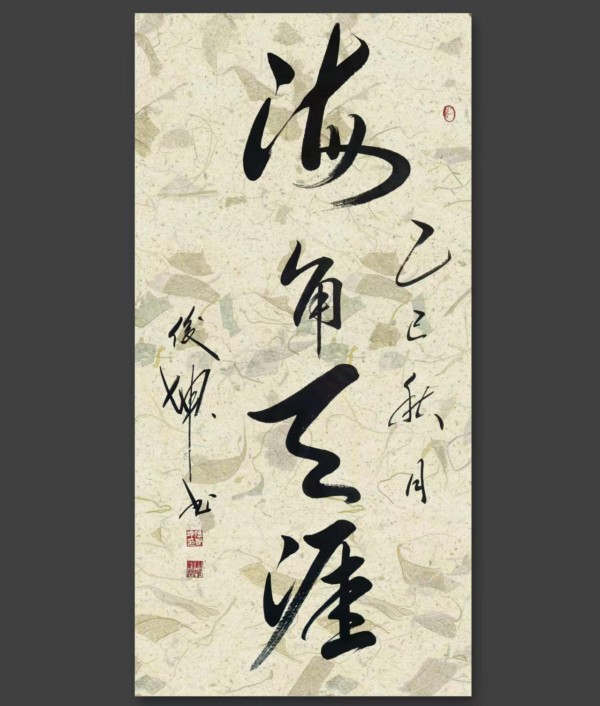 乙巳秋月
海角天涯
俊坤书